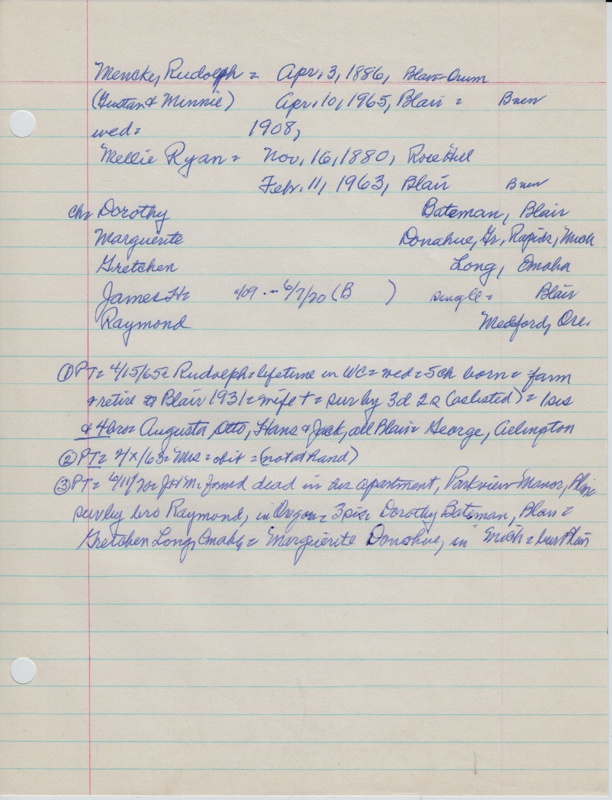 Mencke, Rudolph = Apr. 3, 1886, Blair-Orum
(Gustav & Minnie) Apr. 10, 1965, Blair = Buen
wed = 1908,
Mellie Ryan = Nov. 16, 1880, Rose Hill
Febr. 11, 1963, Blair Buen
ch = Dorothy Bateman, Blair
Marguerite Donahue, Gr. Rapids, Mich
Gretchen Long, Omaha
James H = /09 - 6/7/70 (B ) single = Blair
Raymond Medford, Ore.
① PT = 4/15/65 = Rudolph = lifetime in WC = wed = 5 ch born = farm
& retire to Blair 1931 = wife + = sur by 3d 2s (as listed) = 1 sis
& 4 bro = Augusta, Otto, Hans & Jack, all Blair = George, Arlington
② PT = 2/x/63 = Mrs = obit = (not at hand)
③ PT = 6/11/70 = JHM = found dead in his apartment, Parkview Manor,
sur by bro Raymond, in Oregon = 3 sis = Dorothy Bateman, Blair =
Gretchen Long, Omaha, = Marguerite Donahue, in Mich = bur Blair